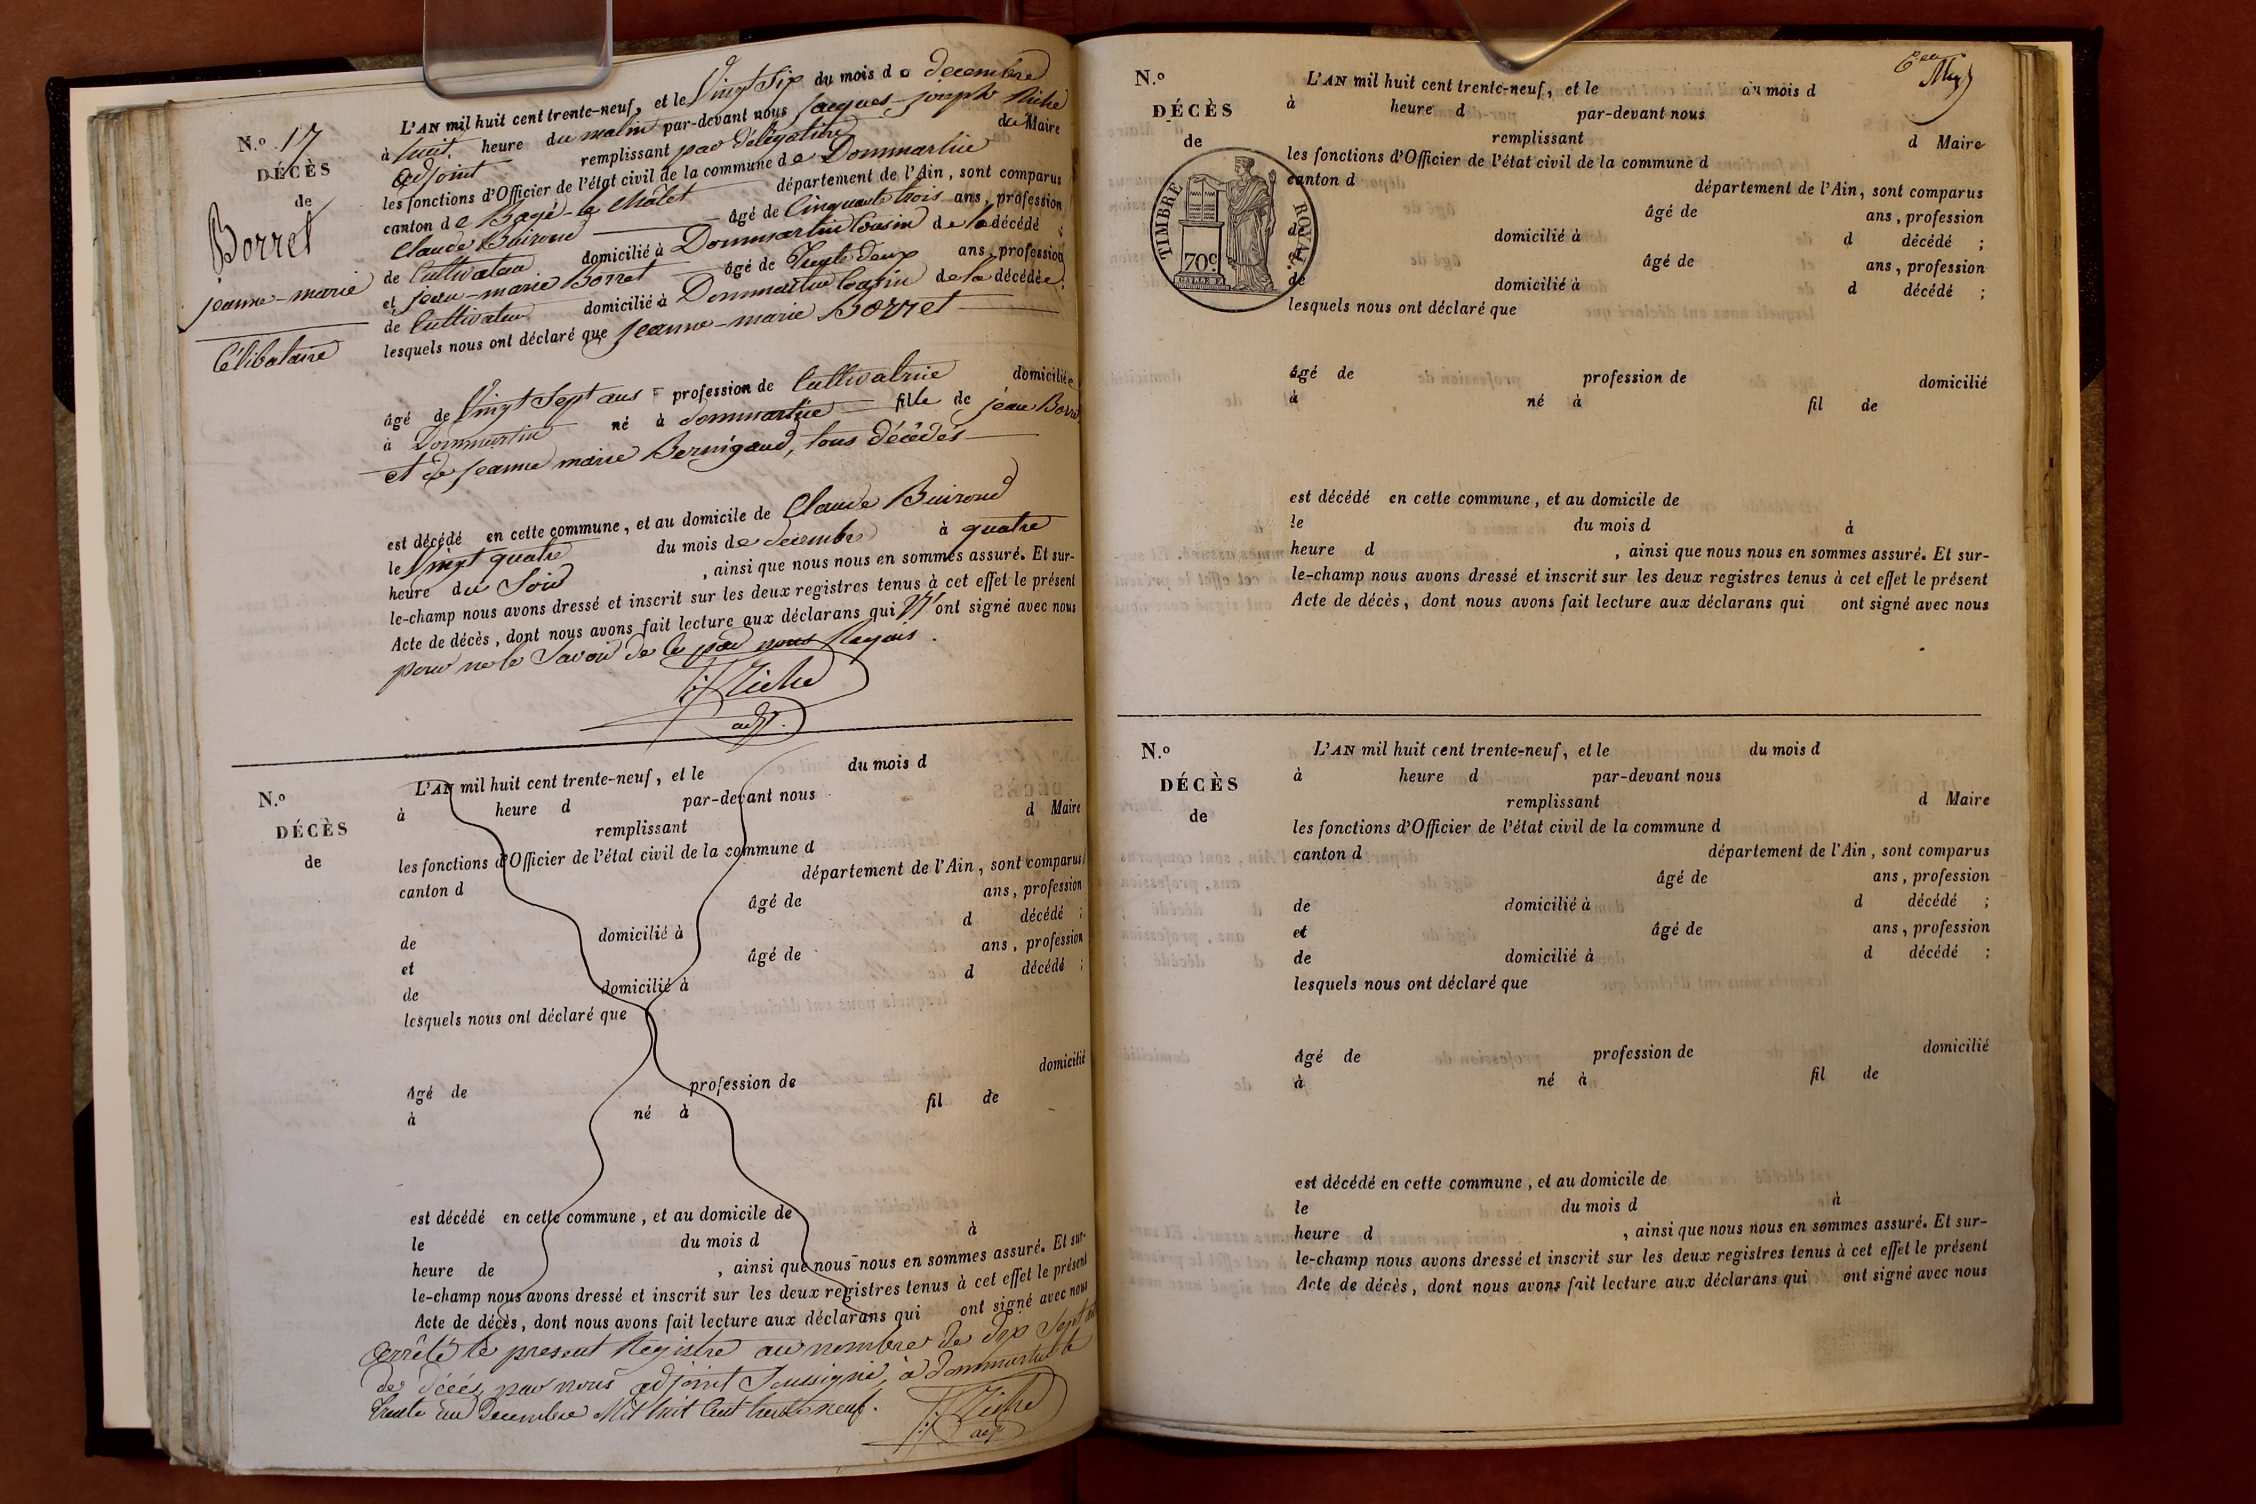 N.o 17
DÉCÈS
de
Borret
jeanne-marie
Célibataire
L'AN mil huit cent trente-neuf, et le Vingt Six du mois de decembre
à huit heure du matin par-devant nous jacques-joseph Riche
adjoint remplissant par délégation du Maire
les fonctions d'Officier de l'état civil de la commune de Dommartin
canton de Bagé-le Châtel département de l'Ain, sont comparus
Claude Buiron âgé de Cinquante trois ans, profession
de Cultivateur domicilié à Dommartin Cousin de la décédé ;
et jean-marie Borret âgé de Trente deux ans, profession
de Cultivateur domicilié à Dommartin Cousin de la décédée ;
lesquels nous ont déclaré que jeanne-marie Borret
âgé de Vingt Sept ans profession de Cultivatrice domiciliée
à Dommartin né à Dommartin fille de jean Borret
et de jeanne marie Bernigaud, tous décédés
est décédé en cette commune, et au domicile de Claude Buiron
le Vingt quatre du mois de decembre à quatre
heure du Soir , ainsi que nous nous en sommes assuré. Et sur-
le-champ nous avons dressé et inscrit sur les deux registres tenus à cet effet le présent
Acte de décès, dont nous avons fait lecture aux déclarans qui N'ont signé avec nous
pour ne le Savoir de ce par nous Requis.
Riche
adjt.
N.o
DÉCÈS
de
L'AN mil huit cent trente-neuf, et le du mois d
à heure d par-devant nous
remplissant d Maire
les fonctions d'Officier de l'état civil de la commune d
canton d département de l'Ain, sont comparus
âgé de ans, profession
de domicilié à d décédé ;
et âgé de ans, profession
de domicilié à d décédé ;
lesquels nous ont déclaré que
âgé de profession de domicilié
à né à fil de
est décédé en cette commune, et au domicile de
le du mois d à
heure de , ainsi que nous nous en sommes assuré. Et sur-
le-champ nous avons dressé et inscrit sur les deux registres tenus à cet effet le présent
Acte de décès, dont nous avons fait lecture aux déclarans qui ont signé avec nous
Arrêté le present Registre au nombre de dix Sept
de décés par nous adjoint Soussigné, à dommartin le
trente un Decembre Mil huit Cent trente neuf.
Riche
adjt
N.o
DÉCÈS
de
TIMBRE ROYAL.
70c
L'AN mil huit cent trente-neuf, et le du mois d
à heure d par-devant nous
remplissant d Maire
les fonctions d'Officier de l'état civil de la commune d
canton d département de l'Ain, sont comparus
âgé de ans, profession
de domicilié à d décédé ;
âgé de ans, profession
de domicilié à d décédé ;
lesquels nous ont déclaré que
âgé de profession de domicilié
à né à fil de
est décédé en cette commune, et au domicile de
le du mois d à
heure d , ainsi que nous nous en sommes assuré. Et sur-
le-champ nous avons dressé et inscrit sur les deux registres tenus à cet effet le présent
Acte de décès, dont nous avons fait lecture aux déclarans qui ont signé avec nous
N.o
DÉCÈS
de
L'AN mil huit cent trente-neuf, et le du mois d
à heure d par-devant nous
remplissant d Maire
les fonctions d'Officier de l'état civil de la commune d
canton d département de l'Ain, sont comparus
âgé de ans, profession
de domicilié à d décédé ;
et âgé de ans, profession
de domicilié à d décédé ;
lesquels nous ont déclaré que
âgé de profession de domicilié
à né à fil de
est décédé en cette commune, et au domicile de
le du mois d à
heure d , ainsi que nous nous en sommes assuré. Et sur-
le-champ nous avons dressé et inscrit sur les deux registres tenus à cet effet le présent
Acte de décès, dont nous avons fait lecture aux déclarans qui ont signé avec nous